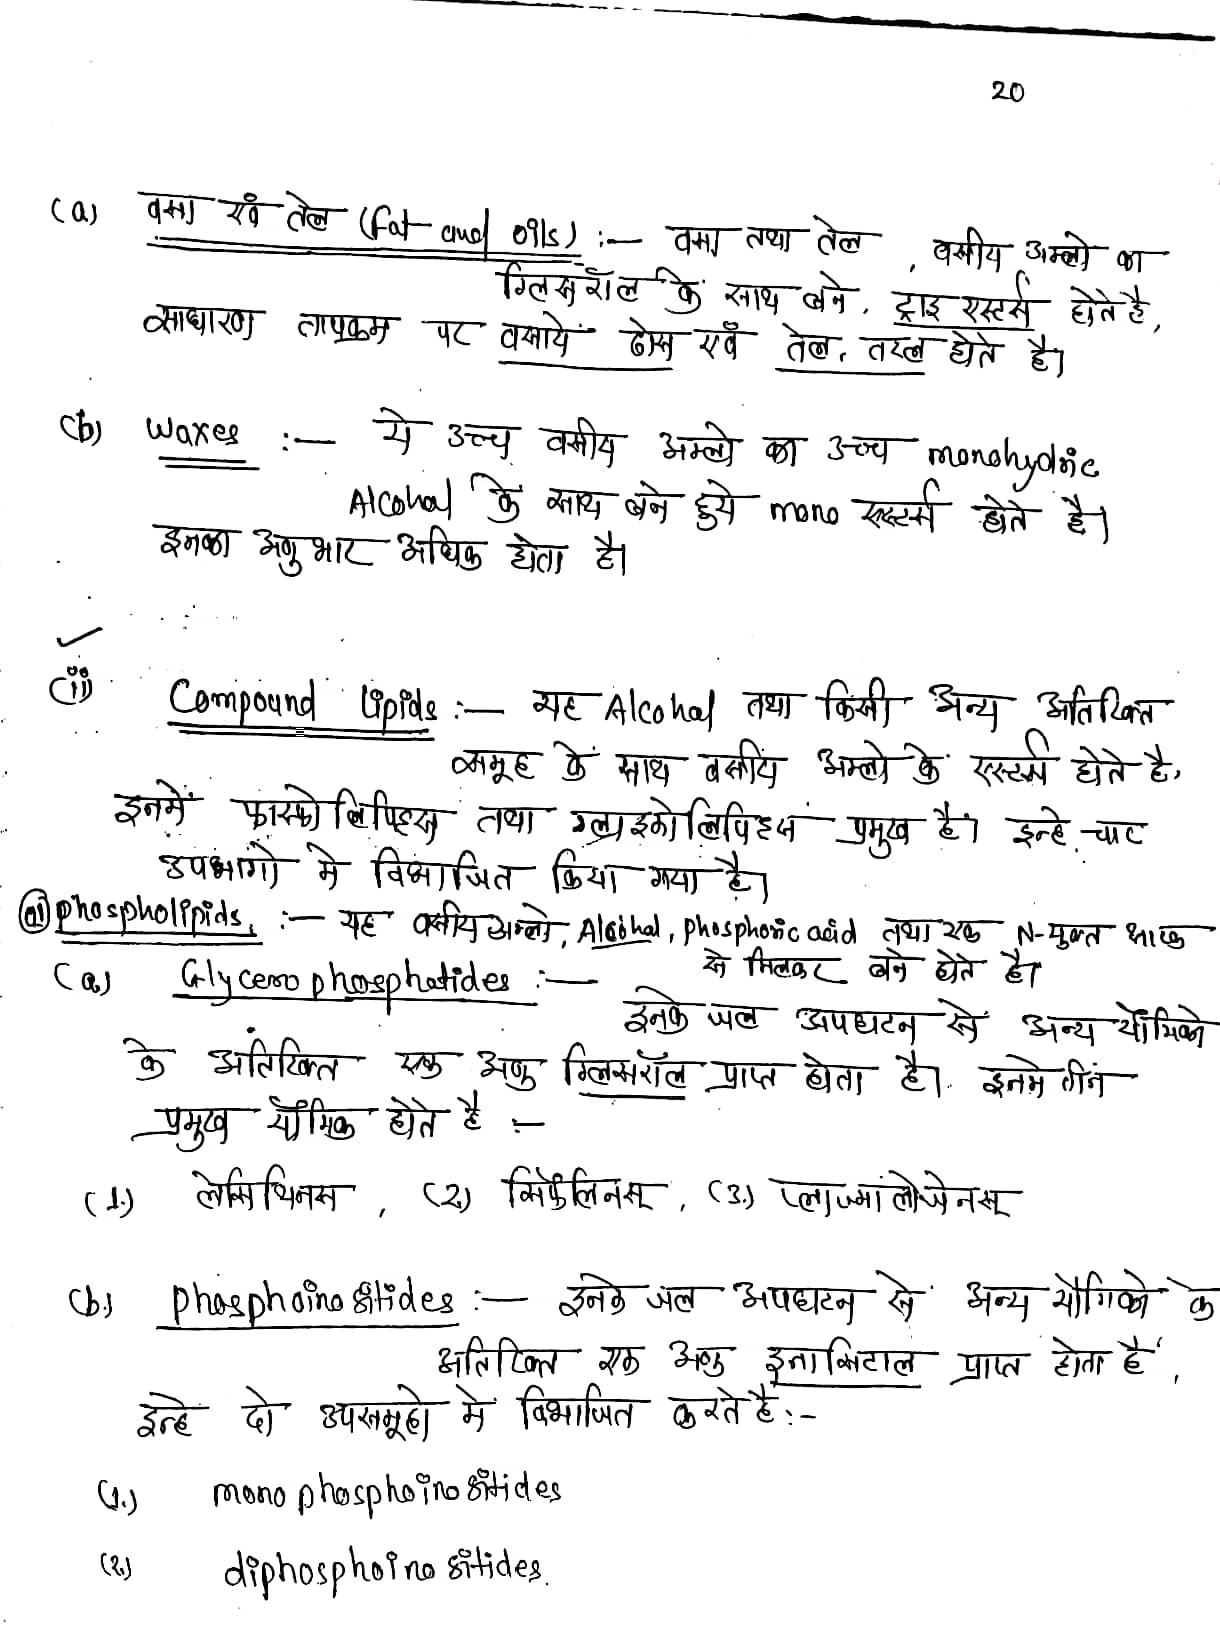 20
(a) वसा एवं तेल (Fat and oils) :— वसा तथा तेल, वसीय अम्लो का
ग्लिसरॉल के साथ बने, ट्राइ एस्टर्स होते है,
साधारण तापक्रम पर वसायें ठोस एवं तेल, तरल होते है।
(b) Waxes :— ये उच्च वसीय अम्लो का उच्च monohydric
Alcohal के साथ बने हुये mono एस्टर्स होते है।
इनका अणुभार अधिक होता है।
(ii) Compound lipids :— यह Alcohal तथा किसी अन्य अतिरिक्त
समूह के साथ वसीय अम्लो के एस्टर्स होते है,
इनमें फास्फोलिपिड्स तथा ग्लाइकोलिपिड्स प्रमुख है। इन्हे चार
उपभागो मे विभाजित किया गया है।
(a) phospholipids, :— यह वसीय अम्लो, Alcohal, phosphoric acid तथा एक N-युक्त भाष्क
से मिलकर बने होते है।
(a.) Glycerophosphatides :—
इनके जल अपघटन से अन्य यौगिको
के अतिरिक्त एक अणु ग्लिसरॉल प्राप्त होता है। इनमे तीन
प्रमुख यौगिक होते है :—
(1.) लेसिथिनस, (2.) सिफैलिनस्, (3.) प्लाज्मालोजेनस्
(b.) phosphoinositides :— इनके जल अपघटन से अन्य यौगिको के
अतिरिक्त एक अणु इनासिटाल प्राप्त होता है,
इन्हे दो उपसमूहो मे विभाजित करते है :-
(1.) monophosphoinositides
(2.) diphosphoinositides.